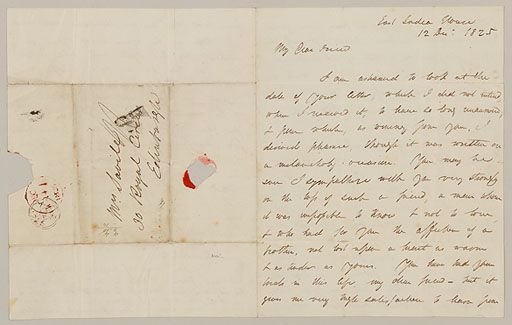 East India House
12 Dec: 1825
My Dear Friend
I am ashamed to look at the
date of your letter, which I did not intend
when I received it to have so long unanswered,
& from which, as coming from you, I
derived pleasure, though it was written on
a melancholy occasion. You may be
sure I sympathize with you very strongly
on the loss of such a friend, a man whom
it was impossible to know & not to love,
& who had for you the affection of a
brother, not lost upon a heart as warm
& as tender as yours. You have had your
trials in this life my dear friend - but it
gives me very satisfaction to learn from
Mrs
30 Royal Circus
Edinburgh